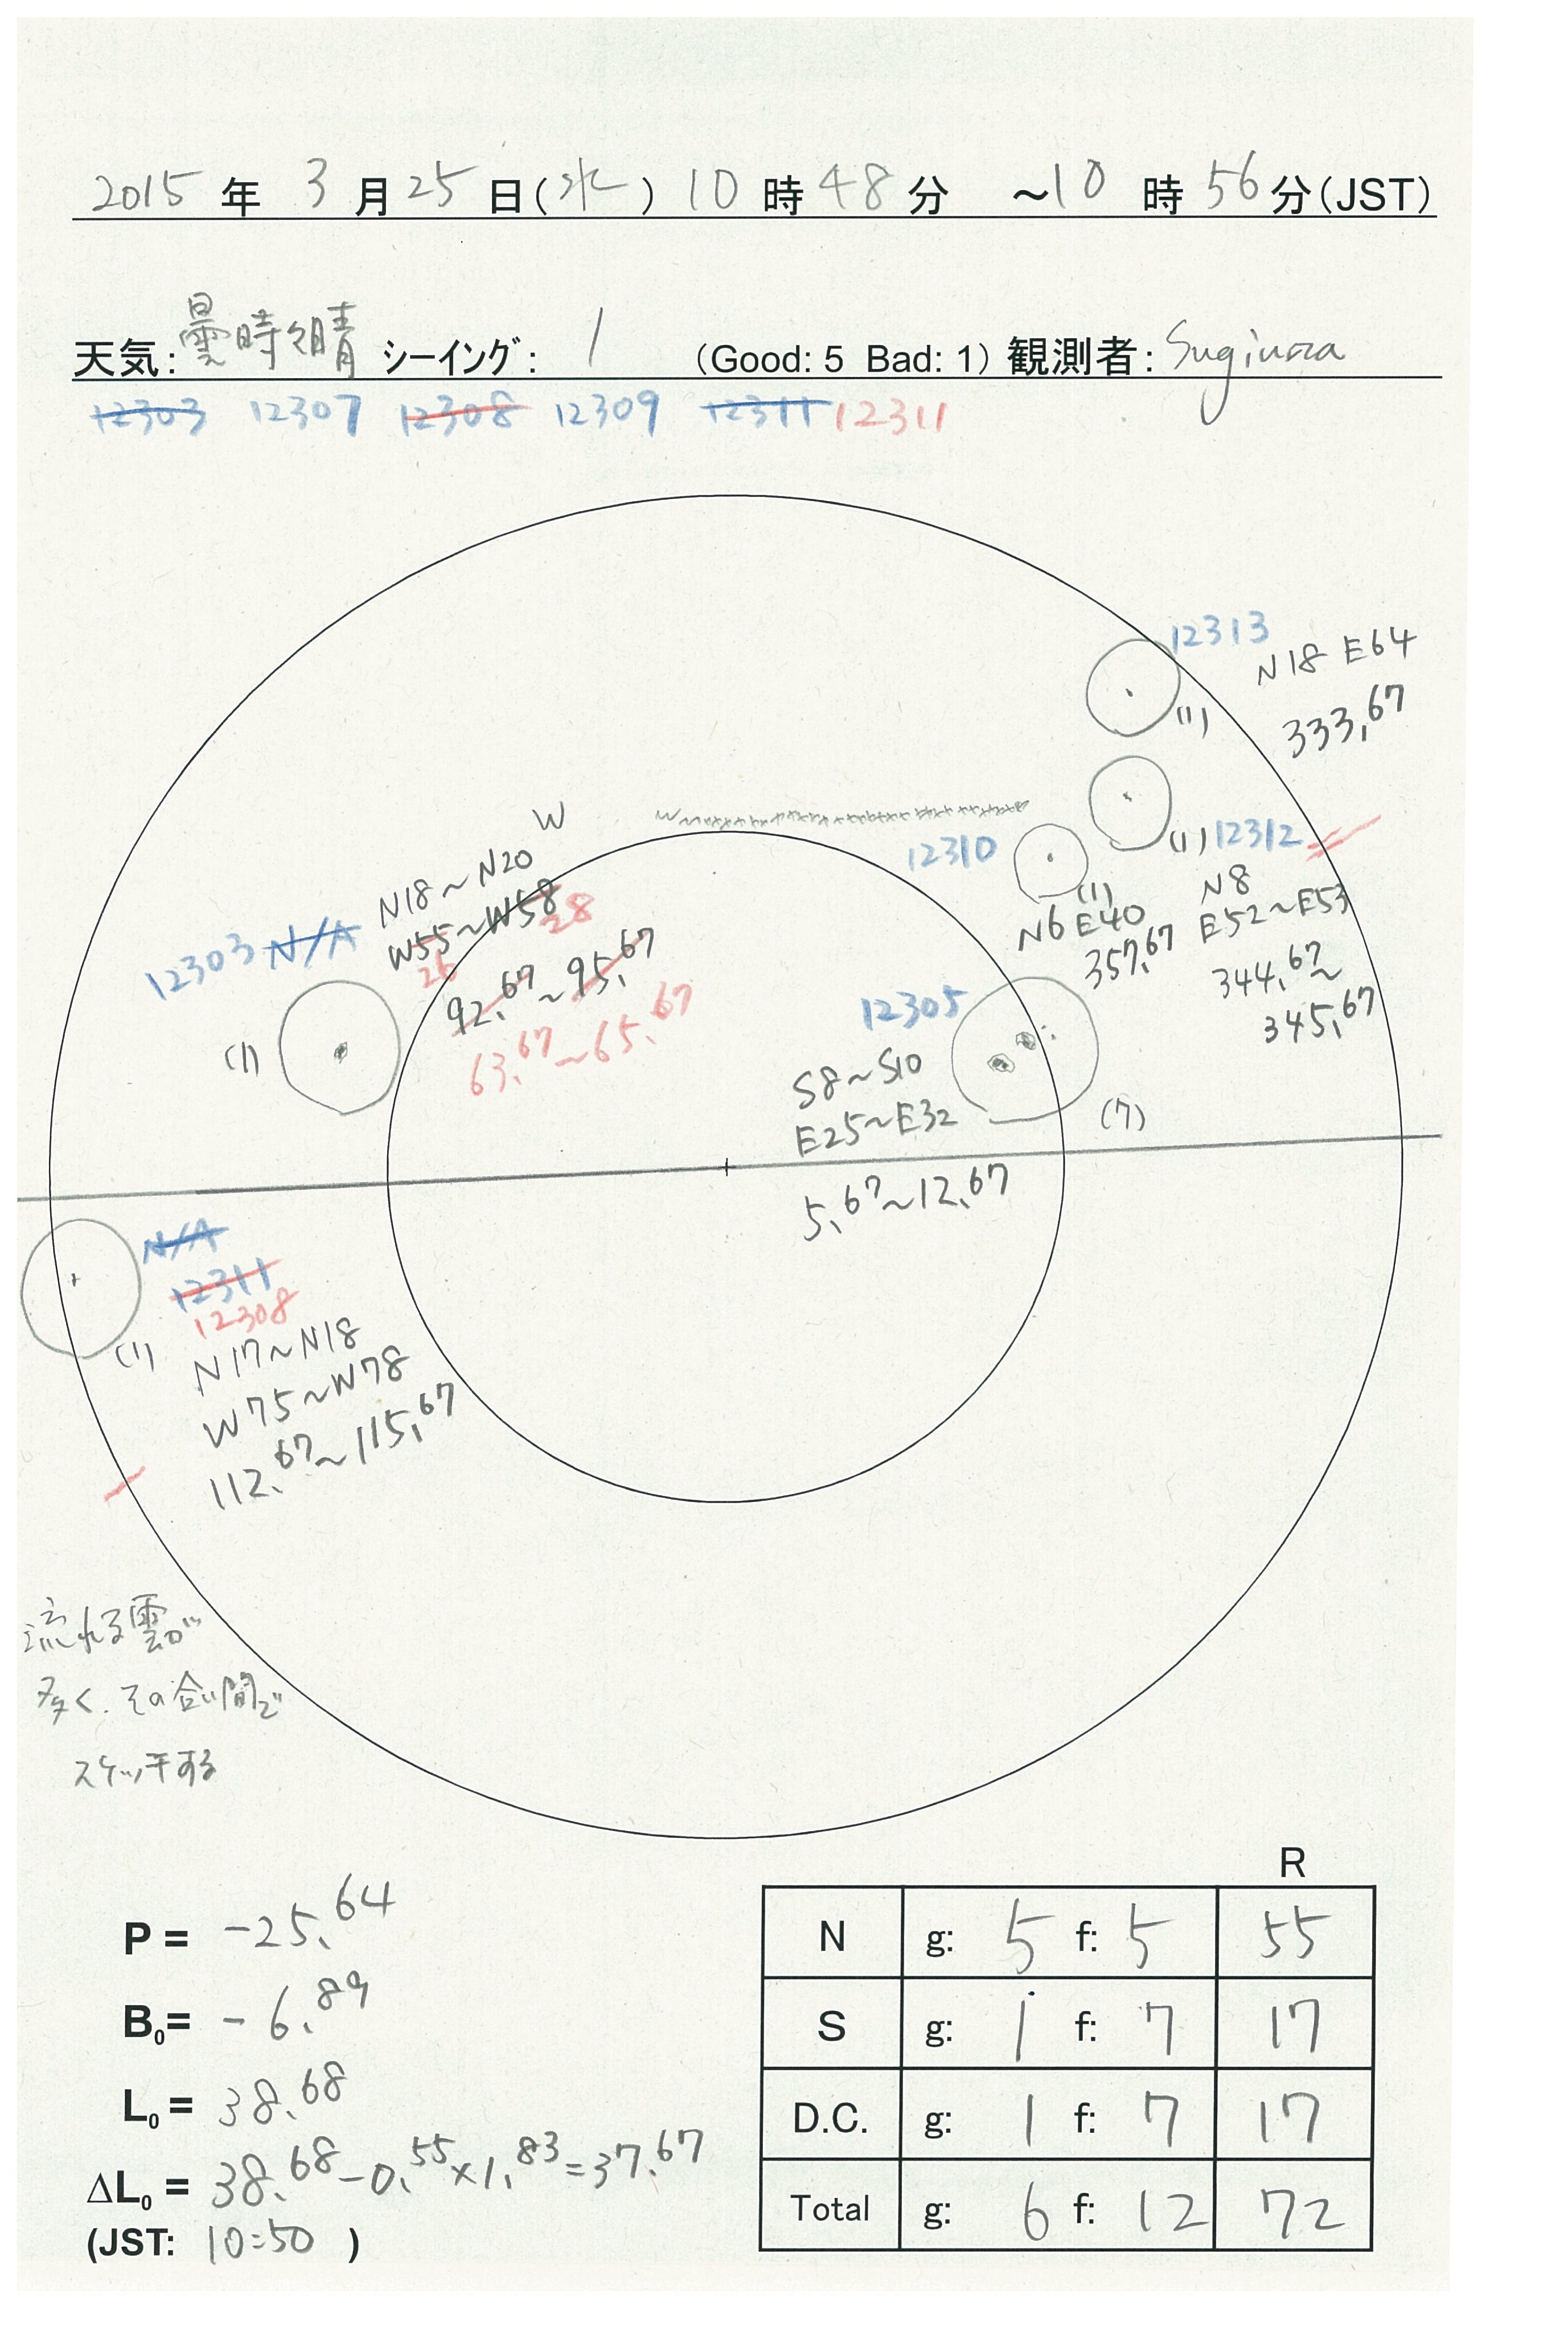 2015 年 3 月 25 日(水) 10 時 48 分 ~10 時 56 分(JST)
天気: 曇時々晴 シーイング: 1 (Good: 5 Bad: 1) 観測者: Sugiura
12303 12307 12308 12309 12311 12311
12313
N18 E64
(1)
333.67
W
12310
(1) 12312
N18~N20
W55~W58
28
25
12303 N/A
(1)
N6 E40
357.67
N8
E52~E53
344.67~
345.67
92.67~95.67
63.67~65.67
(1)
12305
S8~S10
E25~E32
(7)
5.67~12.67
N/A
12311
12308
(1)
N17~N18
W75~W78
112.67~115.67
流れる雲が
多く、その合い間で
スケッチする
R
P = -25.64
N g: 5 f: 5 55
B0= -6.89
S g: 1 f: 7 17
L0 = 38.68
D.C. g: 1 f: 7 17
ΔL0 = 38.68-0.55×1.83=37.67
Total g: 6 f: 12 72
(JST: 10:50 )